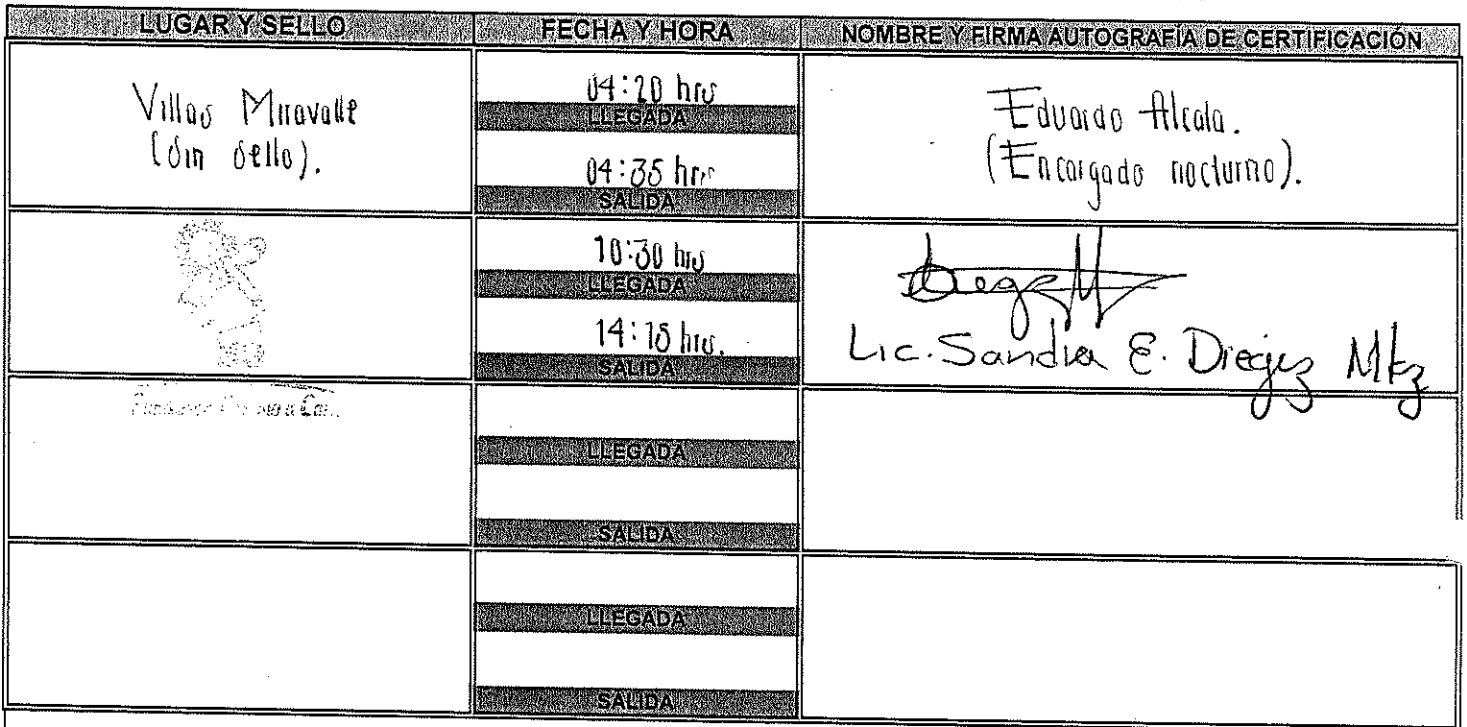 LUGAR Y SELLO
FECHA Y HORA
NOMBRE Y FIRMA AUTOGRAFÍA DE CERTIFICACIÓN
Villas Miravalle
(Sin sello).
04:20 hrs
LLEGADA
04:35 hrs
SALIDA
Eduardo Alcala.
(Encargado nocturno).
10:30 hrs
LLEGADA
14:15 hrs.
SALIDA
Lic. Sandra E. Diegez Mtz
LLEGADA
SALIDA
LLEGADA
SALIDA